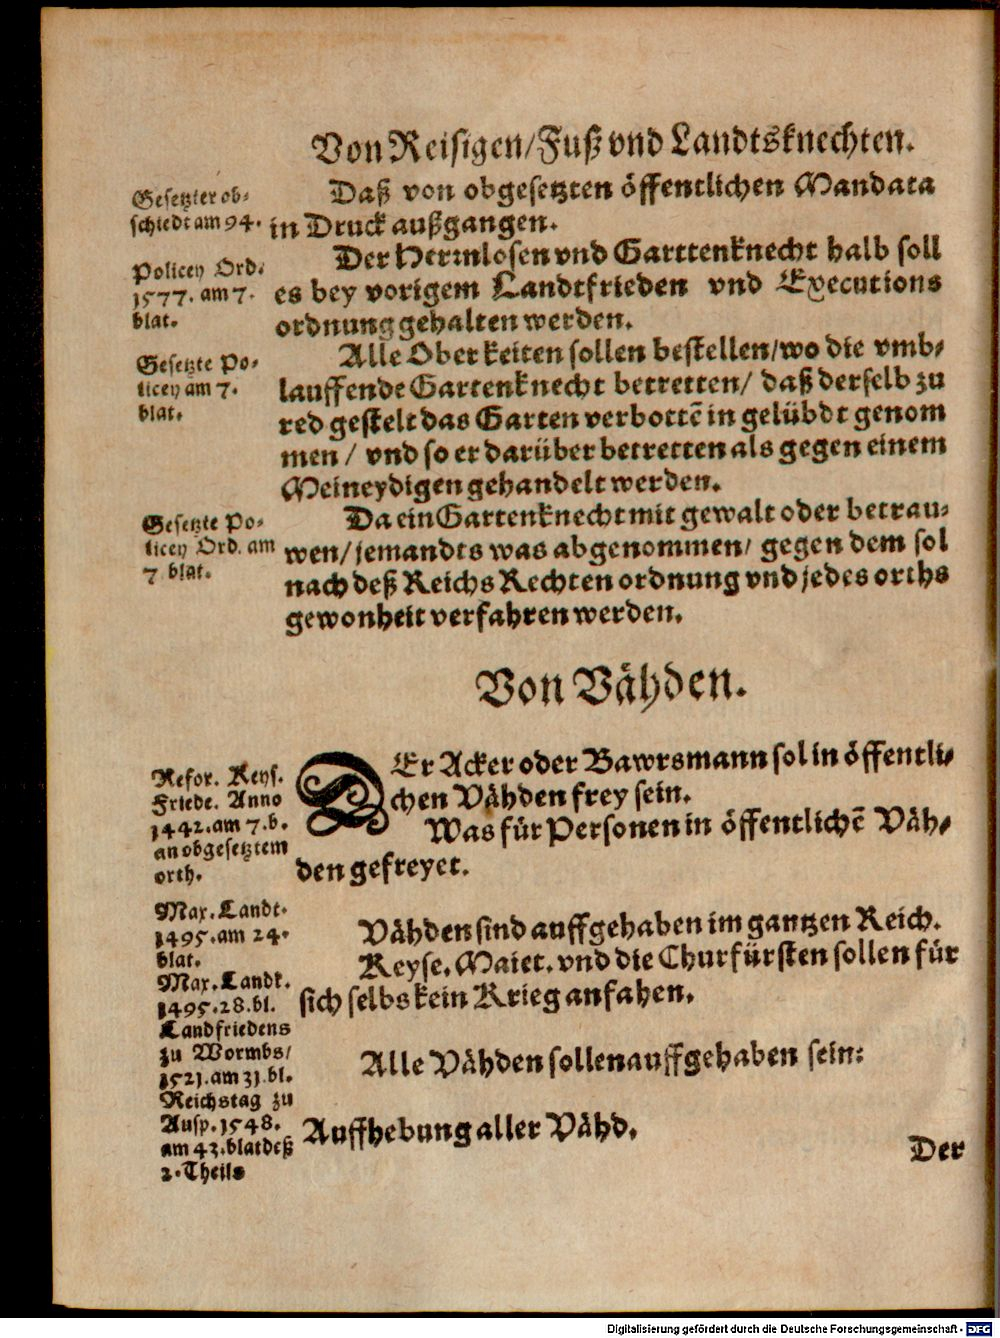 Von Reisigen/Fuß vnd Landtsknechten.
Gesetzter ob-
schiedt am 94.
Daß von obgesetzten öffentlichen Mandata
in Druck außgangen.
Policey Ord.
1577. am 7.
blat.
Der Herrnlosen vnd Garttenknecht halb soll
es bey vorigem Landtfrieden vnd Executions
ordnung gehalten werden.
Gesetzte Po-
licey am 7.
blat.
Alle Oberkeiten sollen bestellen/wo die vmb-
lauffende Gartenknecht betretten/ daß derselb zu
red gestelt das Garten verbottē in gelübdt genom
men / vnd so er darüber betretten als gegen einem
Meineydigen gehandelt werden.
Gesetzte Po-
licey Ord. am
7 blat.
Da ein Gartenknecht mit gewalt oder betrau-
wen/jemandts was abgenommen/ gegen dem sol
nach deß Reichs Rechten ordnung vnd jedes orths
gewonheit verfahren werden.
Von Vähden.
Refor. Keys.
Friede. Anno
1442. am 7. b.
an obgesetztem
orth.
DEr Acker oder Bawrsmann sol in öffentli-
chen Vähden frey sein.
Was für Personen in öffentlichē Väh-
den gefreyet.
Max. Landt.
1495. am 24.
blat.
Vähden sind auffgehaben im gantzen Reich.
Max. Landt.
1495. 28. bl.
Keyse. Maiet. vnd die Churfürsten sollen für
sich selbs kein Krieg anfahen.
Landfriedens
zu Wormbs/
1521. am 31. bl.
Alle Vähden sollen auffgehaben sein:
Reichstag zu
Ausp. 1548.
am 43. blat deß
2. Theils
Auffhebung aller Vähd.
Der
Digitalisierung gefördert durch die Deutsche Forschungsgemeinschaft - DFG